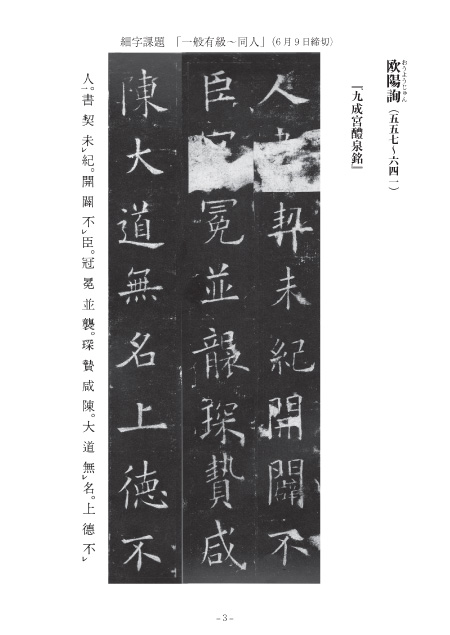 細字課題　「一般有級～同人」(6月9日締切)
おうようじゅん
欧陽詢（五五七～六四一）
『九成宮醴泉銘』
人書契未紀開闢不
臣冠冕並襲琛贄咸
陳大道無名上徳不
人一。書契未レ紀。開闢不レ臣。冠冕並襲。琛贄咸陳。大道無レ名。上徳不レ
- 3 -